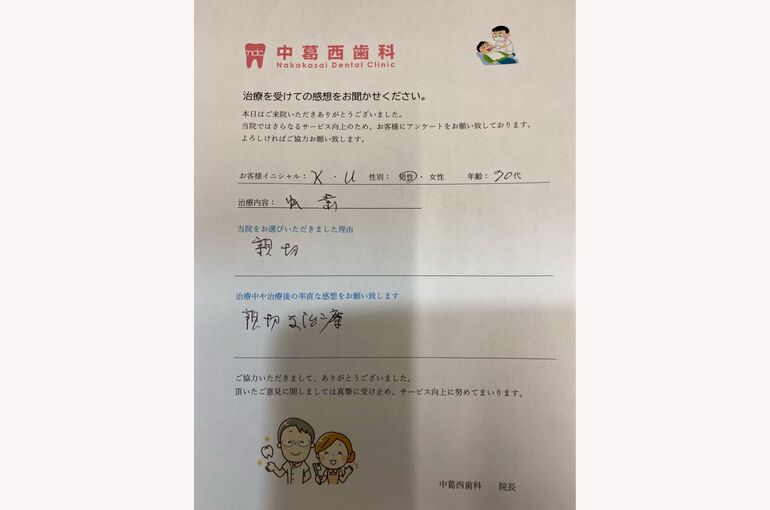 mdc 中葛西歯科
Nakakasai Dental Clinic
治療を受けての感想をお聞かせください。
本日はご来院いただきありがとうございました。
当院ではさらなるサービス向上のため、お客様にアンケートをお願い致しております。
よろしければご協力お願い致します。
お客様イニシャル： K・U 性別： 男性・ 女性 年齢：70代
治療内容： 虫歯
当院をお選びいただきました理由
親切
治療中や治療後の率直な感想をお願い致します
親切な治療
ご協力いただきまして、ありがとうございました。
頂いたご意見に関しましては真摯に受け止め、サービス向上に努めてまいります。
中葛西歯科 院長